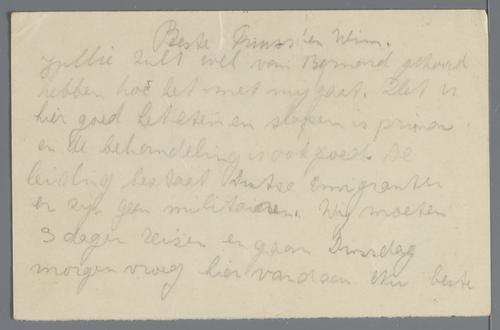 Beste Truus en Wim.
Jullie zult wel van Bernard gehoord
hebben hoe het met mij gaat. Het is
hier goed het eten en slapen is prima
en de behandeling is ook goed. De
leiding bestaat Duitse Emigranten
er zijn geen militairen. Wij moeten
3 dagen reizen en gaan Dinsdag
morgen vroeg hier vandaan. Nu beste